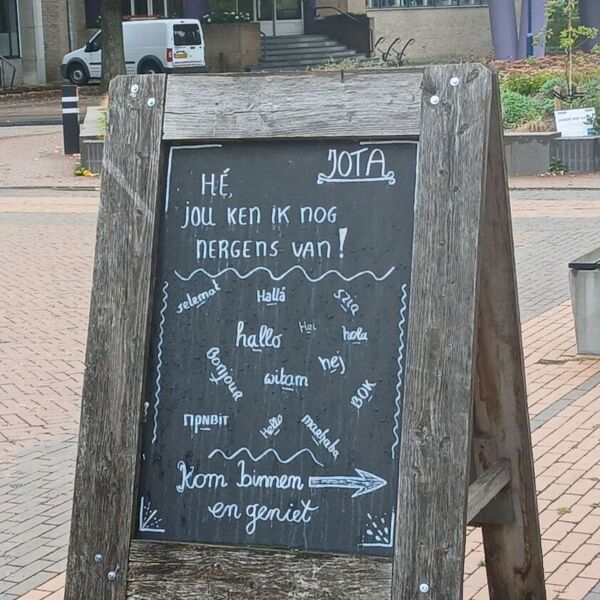 JOTA
HÉ,
JOU KEN IK NOG
NERGENS VAN!
selamat
Hallå
szia
hallo
Hoi
hola
Bonjour
hej
witam
BOK
ПРИВІТ
Hello
marhaba
Kom binnen
en geniet